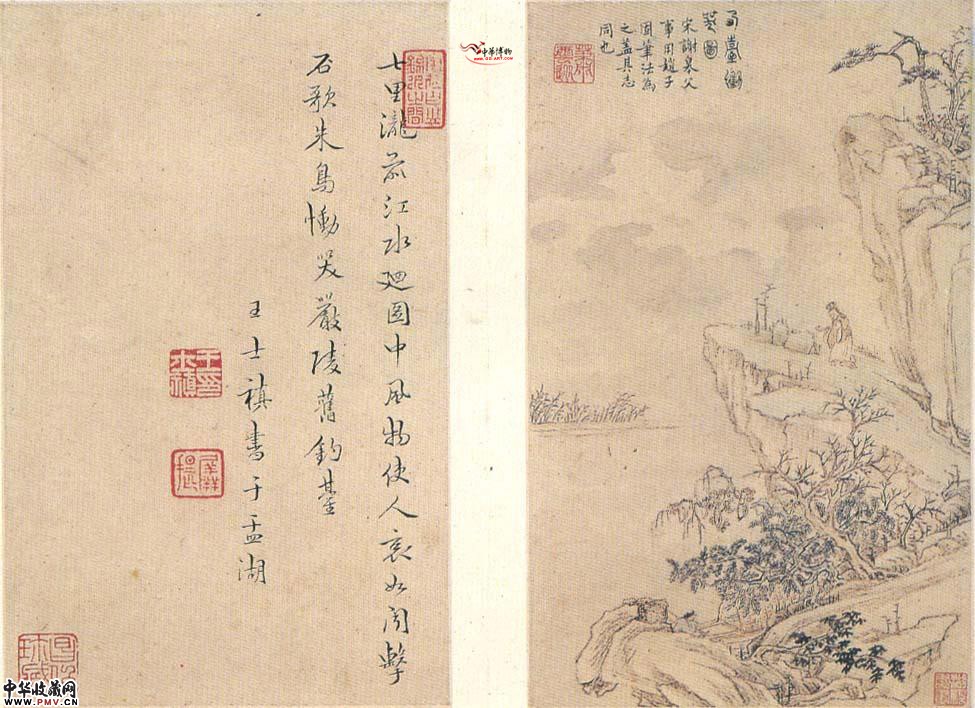 西臺慟
哭圖
宋謝皋父
事用趙子
固筆法為
之蓋其志
同也
七里瀧前江水廻圖中風物使人哀如聞擊
石歌朱鳥慟哭嚴陵舊釣臺
王士禛書于盂湖
中華博物
中华收藏网
www.PMV.CN